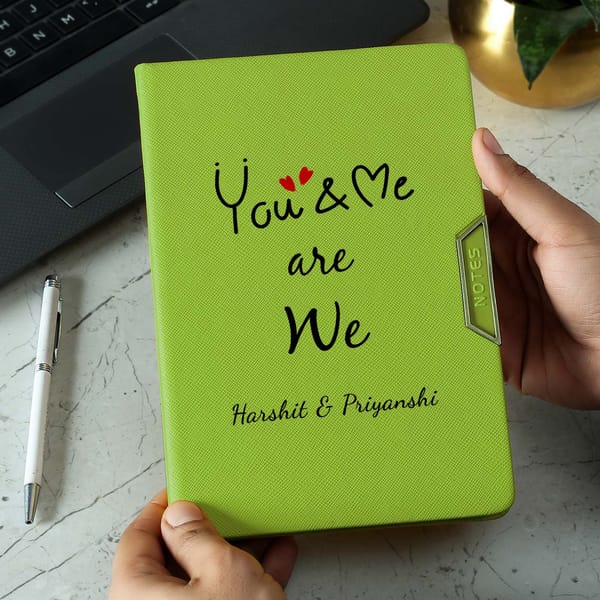 You & Me
are
We
Harshit & Priyanshi
NOTES